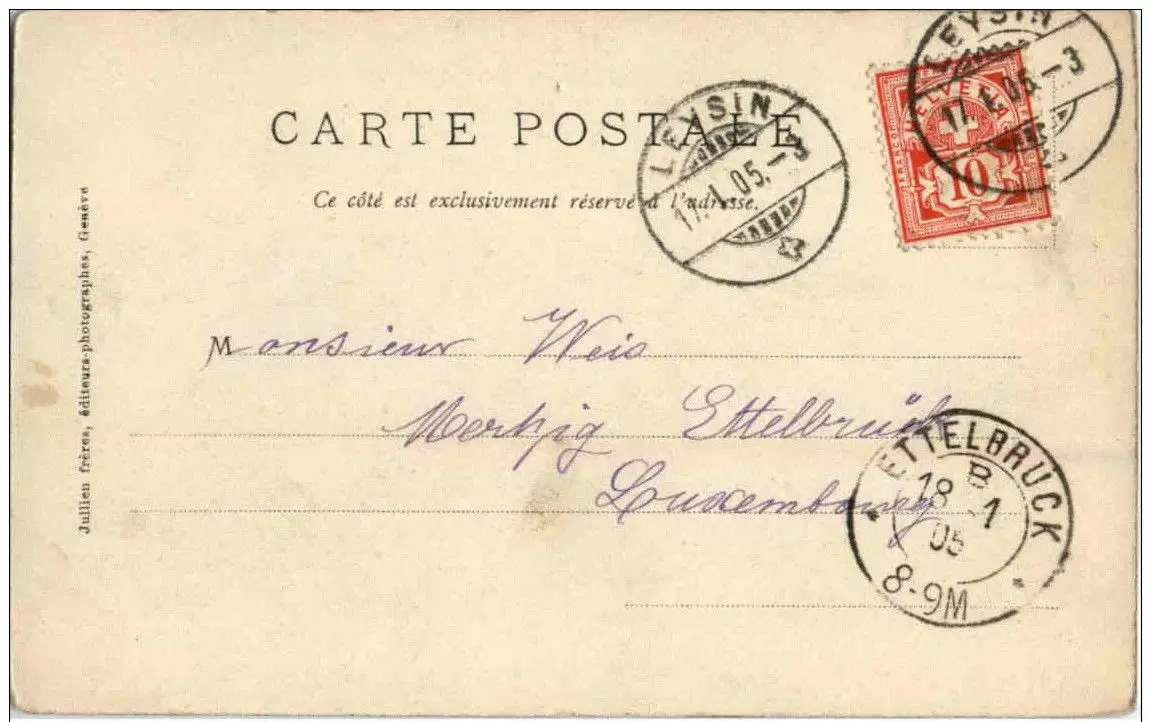 CARTE POSTALE
Ce côté est exclusivement réservé à l'adresse.
LEYSIN
17. I. 05. – 3
LEYSIN
17. I. 05. – 3
HELVETIA
10
Jullien frères, éditeurs-photographes, Genève
Monsieur Weis
Mertzig Ettelbrück
Luxembourg
ETTELBRUCK
B
18 1
05
8-9M